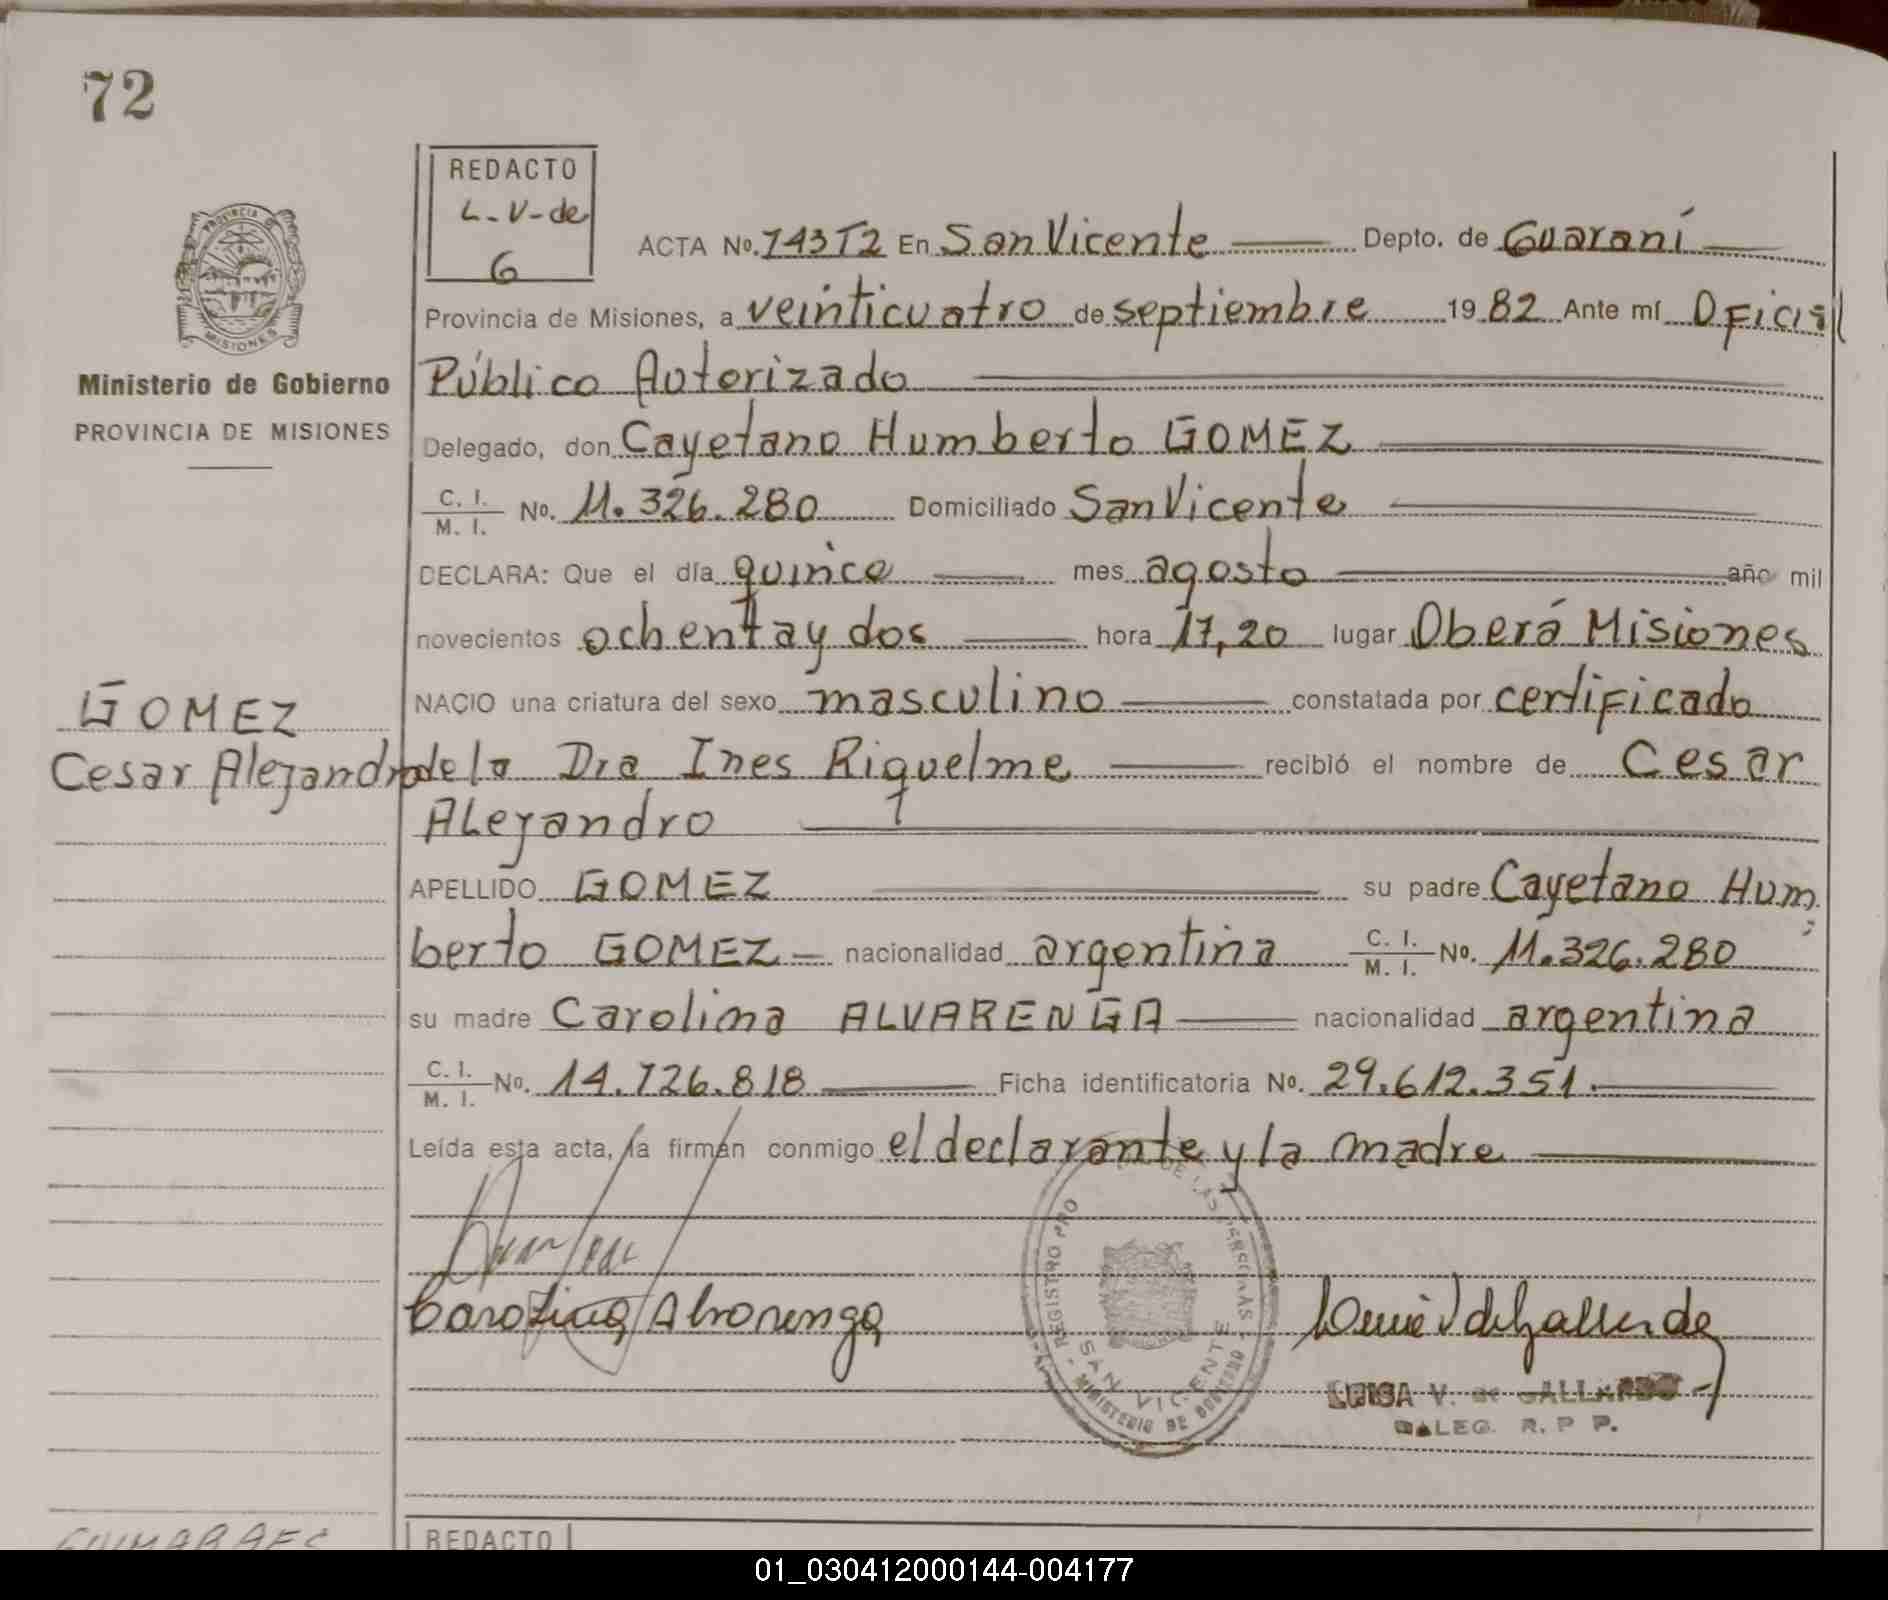 72
REDACTO
L-V-de
G
ACTA No. 143T2 En San Vicente Depto. de Guaraní
Provincia de Misiones, a veinticuatro de septiembre 1982 Ante mí Oficial
Público Autorizado
PROVINCIA DE
MISIONES
Ministerio de Gobierno
PROVINCIA DE MISIONES
Delegado, don Cayetano Humberto GOMEZ
C. I. / M. I. No. 11.326.280 Domiciliado San Vicente
DECLARA: Que el día quince mes agosto año mil
novecientos ochenta y dos hora 17,20 lugar Oberá Misiones
NACIO una criatura del sexo masculino constatada por certificado
GOMEZ
Cesar Alejandro
de la Dra Ines Riquelme recibió el nombre de Cesar
Alejandro
APELLIDO GOMEZ su padre Cayetano Hum
berto GOMEZ nacionalidad argentina C. I. / M. I. No. 11.326.280
su madre Carolina ALVARENGA nacionalidad argentina
C. I. / M. I. No. 14.726.818 Ficha identificatoria No. 29.612.351.
Leída esta acta, la firman conmigo el declarante y la madre
Carolina Alvarenga
REGISTRO PRO DE LAS PERSONAS
SAN VICENTE
MINISTERIO DE GOBIERNO
LUISA V. de GALLARDO
DELEG. R. P P.
REDACTO
01_030412000144-004177